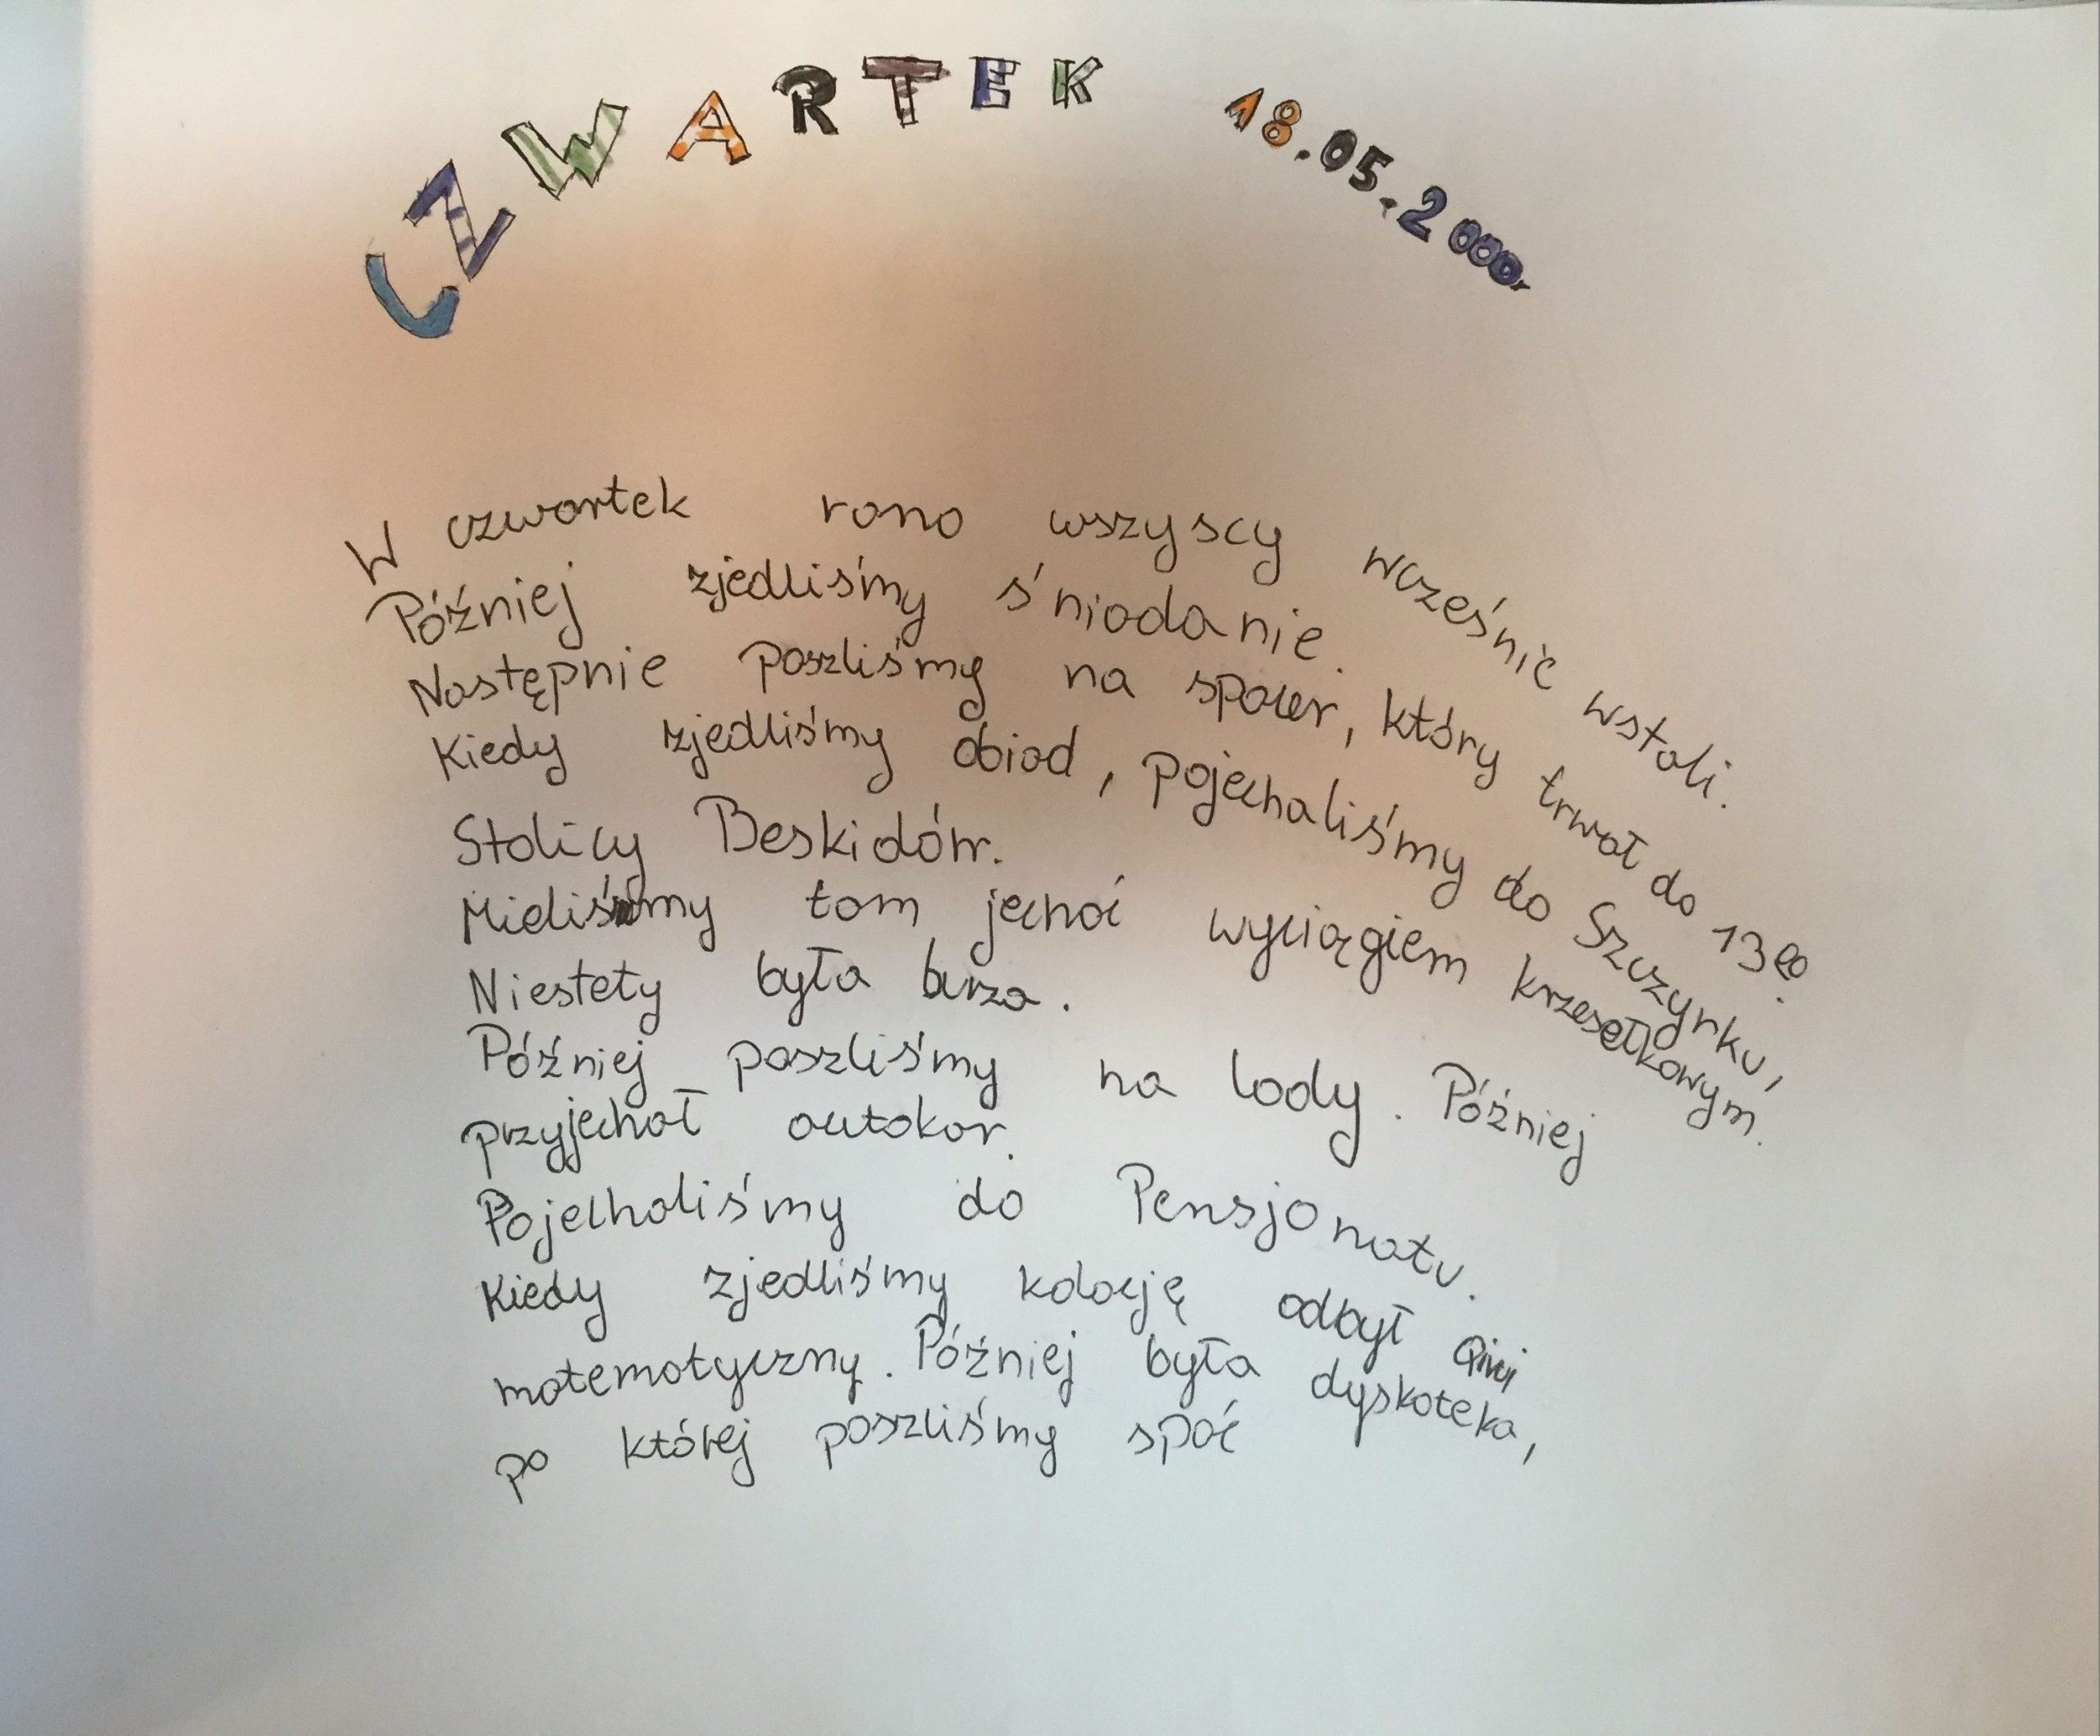 CZWARTEK 18.05.2000r
W czwartek rano wszyscy wcześnie wstali.
Później zjedliśmy śniadanie.
Następnie poszliśmy na spacer, który trwał do 13 00.
Kiedy zjedliśmy obiad, pojechaliśmy do Szczyrku,
Stolicy Beskidów.
Mieliśmy tam jechać wyciągiem krzesełkowym.
Niestety była burza.
Później poszliśmy na lody. Później
przyjechał autokar.
Pojechaliśmy do Pensjonatu.
Kiedy zjedliśmy kolację odbył
matematyczny. Później była dyskoteka,
po której poszliśmy spać